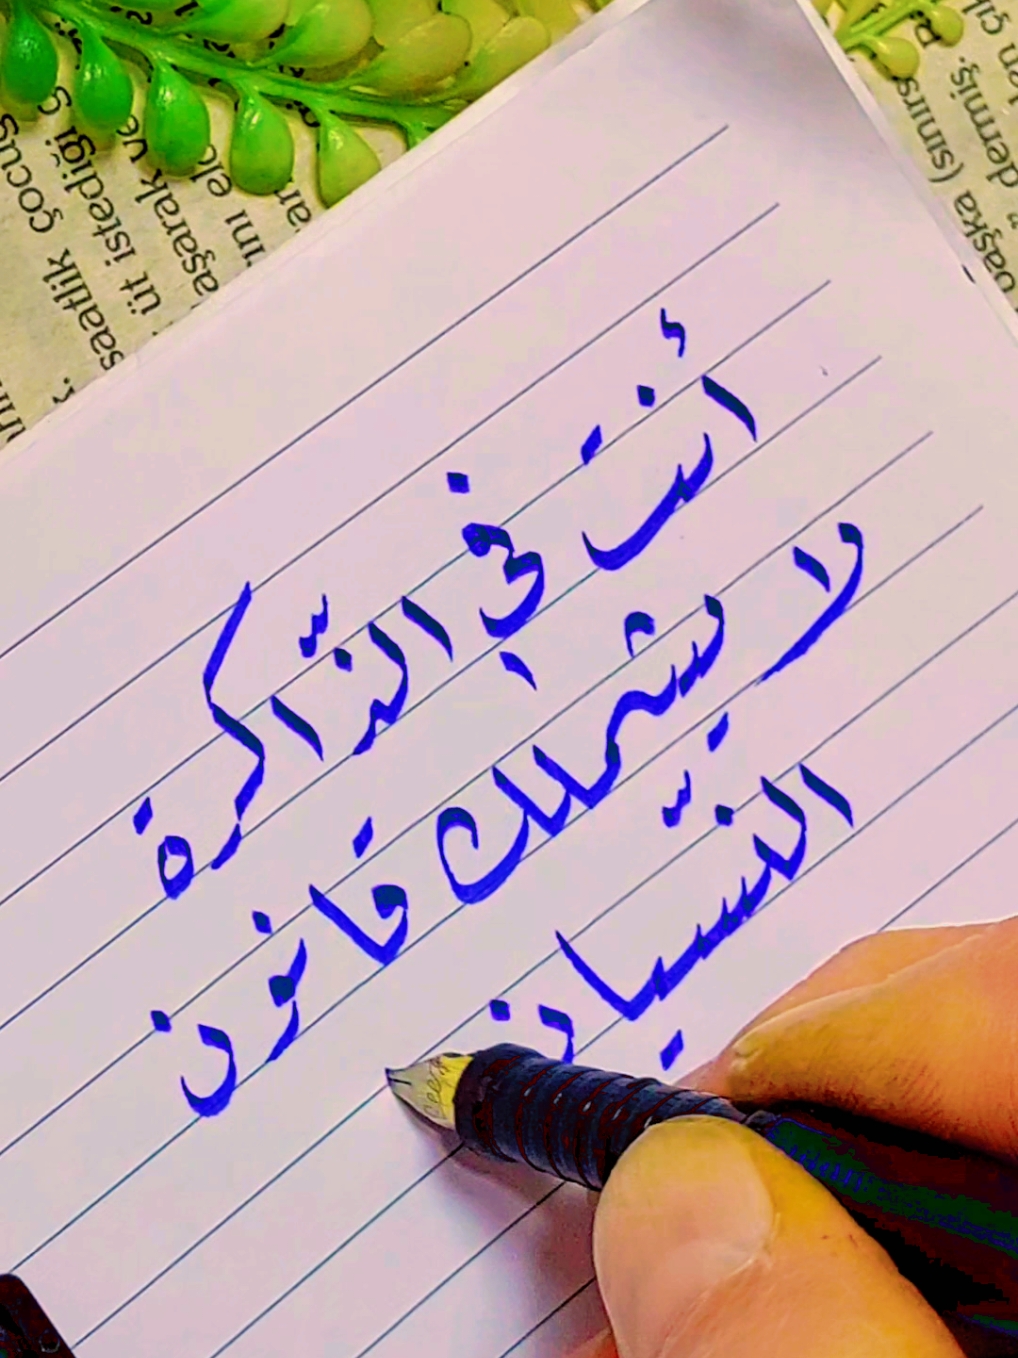 أنت في الذّاكرة
لا يشملك قانون
النّسيان
saatlik çocuğ
üt istediği g
aşarak ve
başka (sınırs
" dermiş.